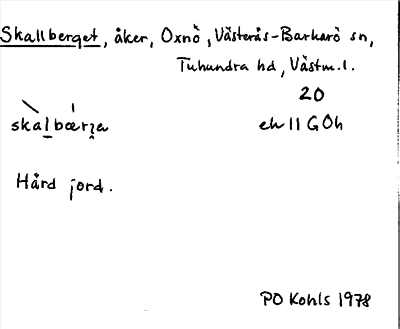 Skallberget, åker, Oxnö, Västerås-Barkarö sn,
Tuhundra hd, Västm.l.
20
skalbærja
ek 11 G Oh
Hård jord.
PO Kohls 1978